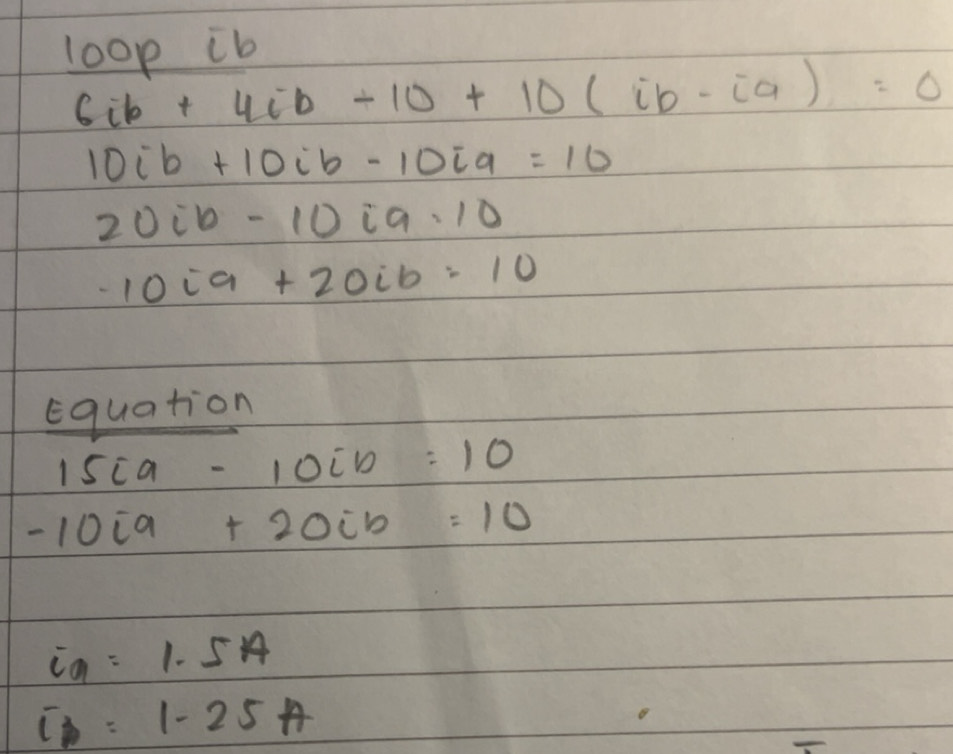 loop ib
6ib + 4ib - 10 + 10 ( ib - ia ) = 0
10ib + 10ib - 10ia = 10
20ib - 10ia = 10
-10ia + 20ib = 10
Equation
15ia - 10ib = 10
-10ia + 20ib = 10
ia = 1.5A
ib = 1.25A